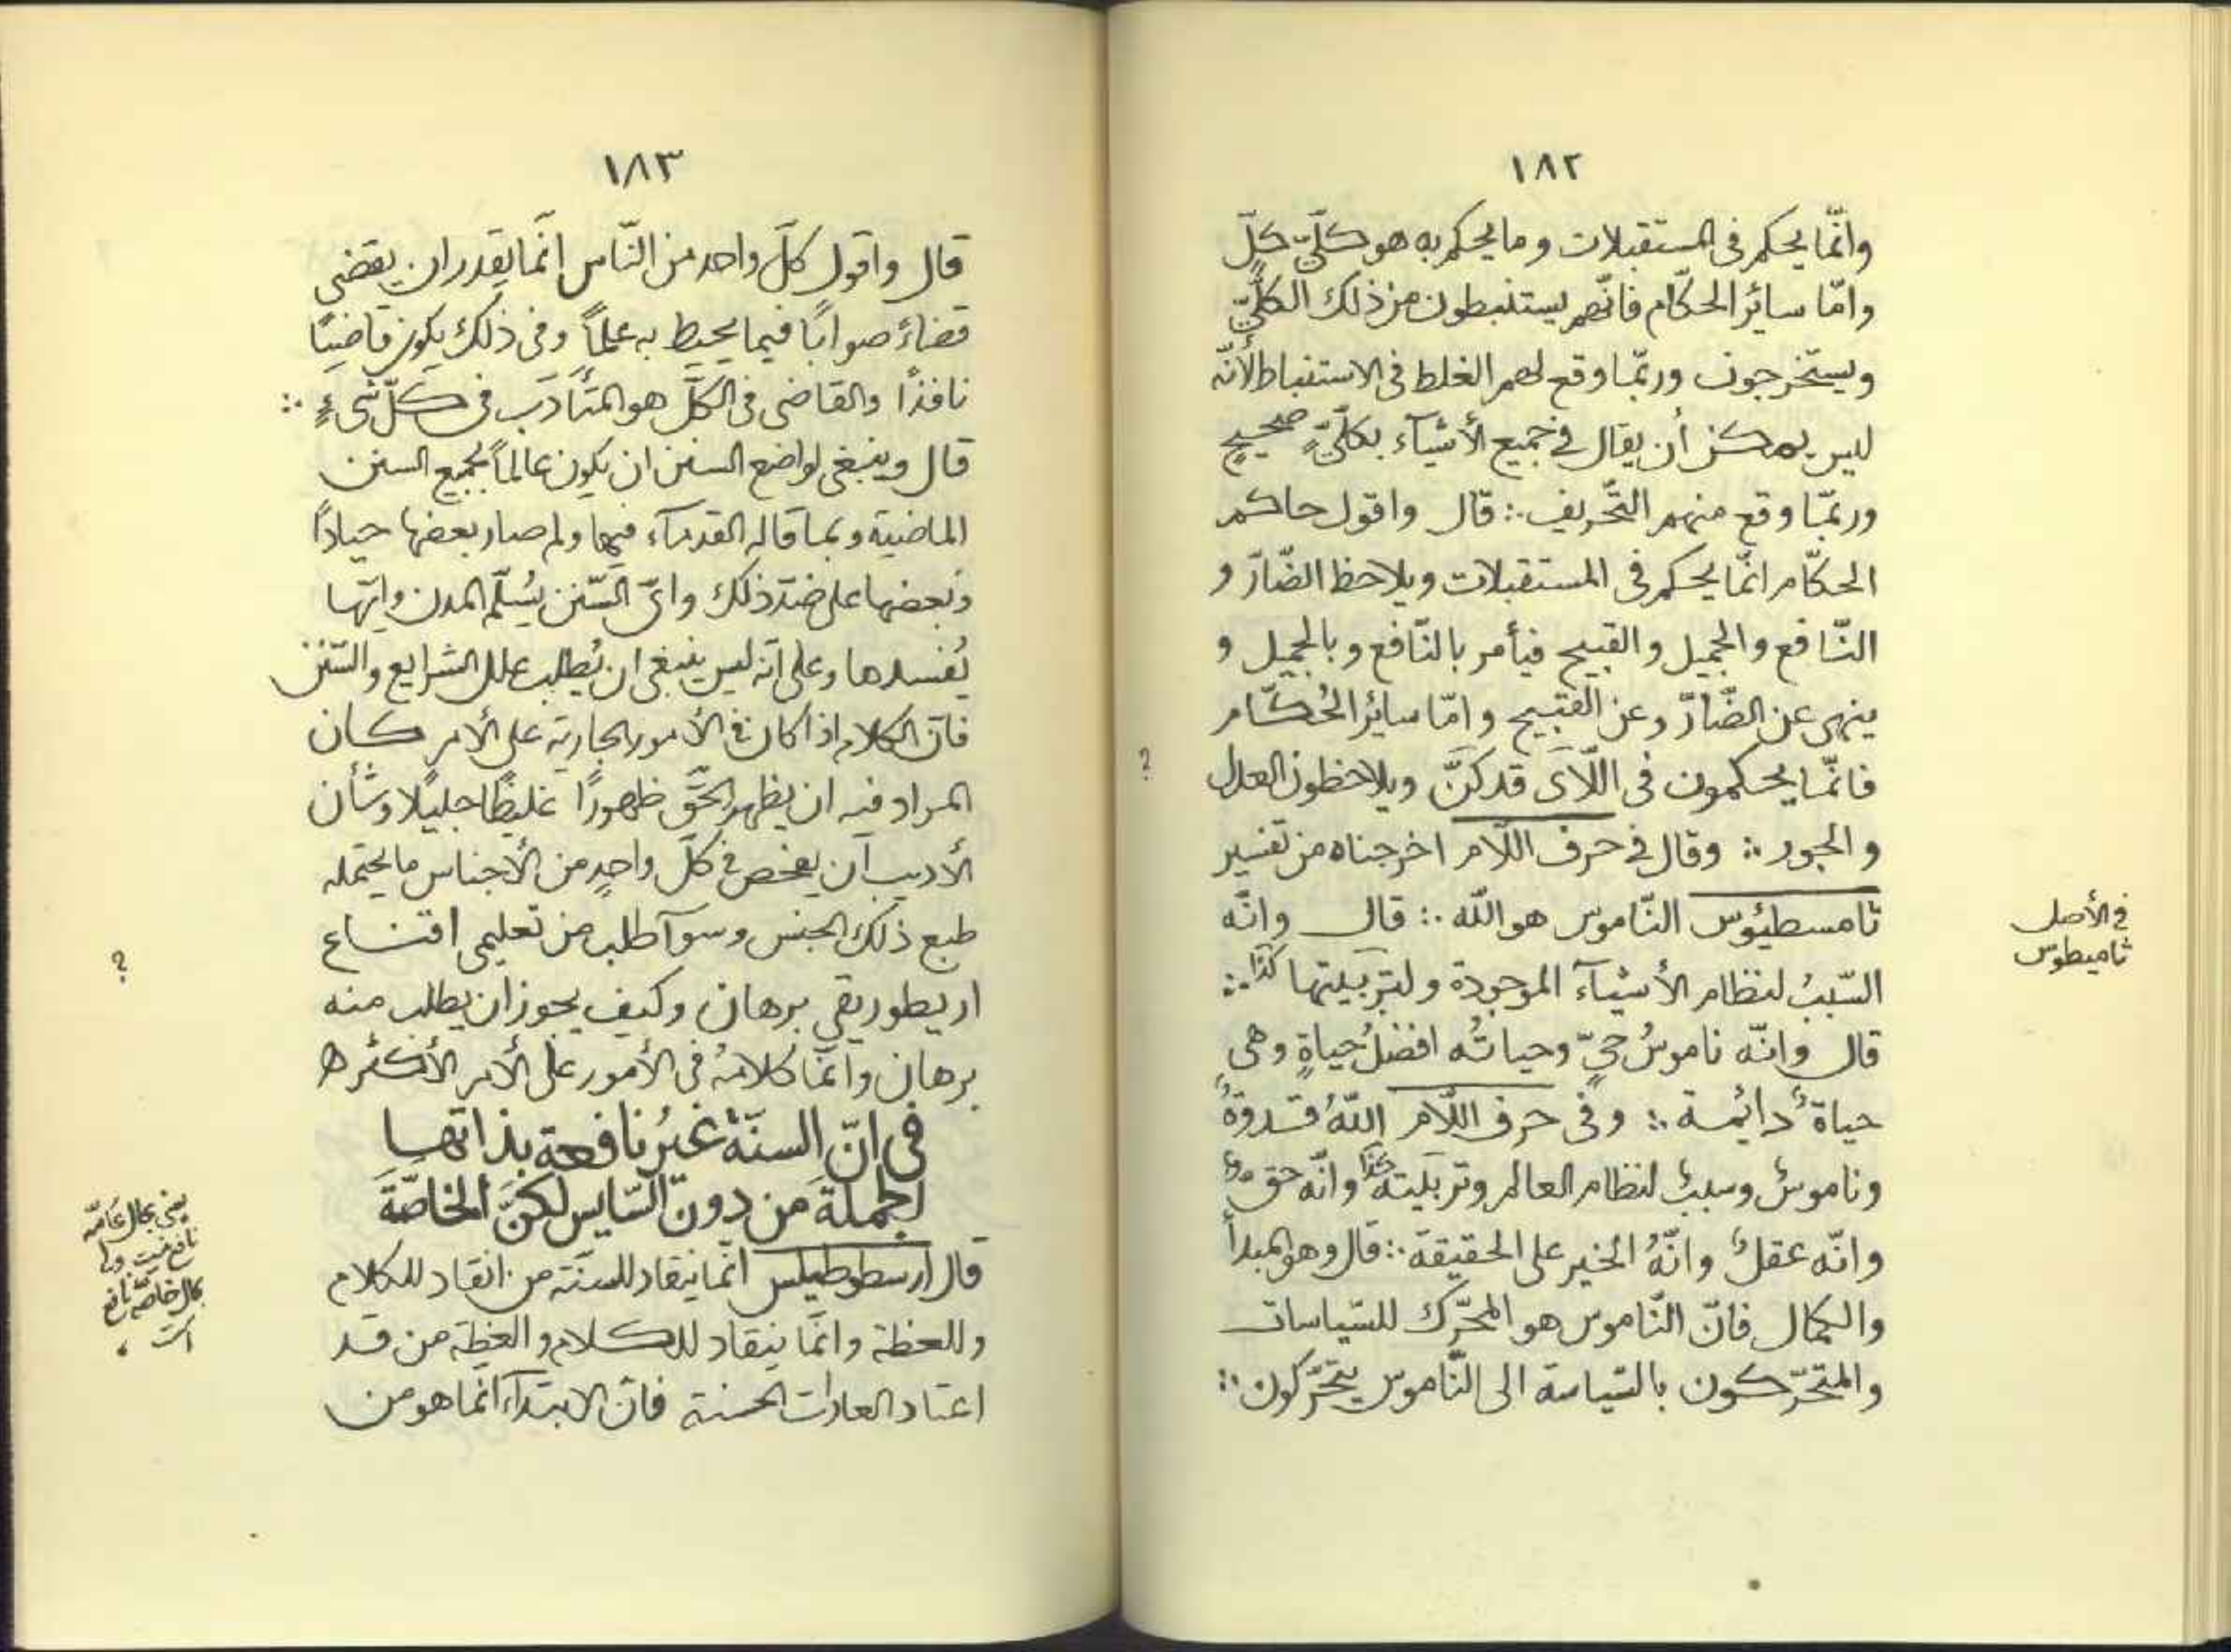 ١٨٢
وانّما يحكم في المستقبلات وما يحكم به هو كلّيّ كلّ
وامّا سائر الحكّام فانّهم يستنبطون من ذلك الكلّيّ
ويستخرجون وربّما وقع لهم الغلط في الاستنباط لأنّه
ليس يمكن أن يقال في جميع الأشيآء بكلّيٍّ صحيحٍ
وربّما وقع منهم التّحريف ∴ قال واقول حاكم
الحكّام انّما يحكم في المستقبلات ويلاحظ الضّارّ و
النّافع والجميل والقبيح فيأمر بالنّافع وبالجميل و
ينهى عن الضّارّ وعن القبيح وامّا سائر الحُكّام
فانّما يحكمون في اللّآى قد كنّ ويلاحظون العدل
؟
والجور ∴ وقال في حرف اللّام اخرجناه من تفسير
ثامسطيُوس النّاموس هو اللّه ∴ قال وانّه
في الأصل
ثاميطوس
السّببُ لنظام الأشيآء الموجودة ولتربيتها كذا ∴
قال وانّه ناموسٌ حيٌّ وحياتُه افضلُ حياةٍ وهي
حياةٌ دائمة ∴ وفي حرف اللّام اللّهُ قدوةٌ
وناموسٌ وسببٌ لنظام العالم وتربيته كذا وانّه حقٌّ
وانّه عقلٌ وانّهُ الخير على الحقيقة ∴ قال وهو المبدأ
والكمال فانّ النّاموس هو المحرّك للسّياسات
والمتحرّكون بالسّياسة الى النّاموس يتحرّكون ∴
١٨٣
قال واقول كلّ واحد من النّاس انّما يقدر ان يقضى
قضاءً صوابًا فيما يحيط به علمًا وفي ذلك يكون قاضيًا
نافذًا والقاضى في الكلّ هو المتأدّب في كلّ شىءٍ ∴
قال وينبغى لواضع السنن ان يكون عالمًا بجميع السنن
الماضية وبما قاله القدمآء فيها ولم صار بعضها جيادًا
وبعضها على ضدّ ذلك واىّ السّنن يُسلّم المدن وايّها
يُفسدها وعلى انّه ليس ينبغى ان يُطلب علل الشرايع والسّنن
فانّ الكلام اذا كان في الأمور الجارية على الأمر كان
المراد فيه ان يظهر الحقّ ظهورًا غليظًا جليلًا وشأن
الأديب أن يفحص في كلّ واحدٍ من الأجناس ما يحتمله
طبع ذلك الجنس وسوآ طلب من تعليمى اقناع
؟
او يطوريقي برهان وكيف يجوز ان يطلب منه
برهان وانّما كلامُه في الأمور على الأمر الأكثر ه
في انّ السنّة غيرُ نافعة بذاتها
الجملةَ من دون السّايس لكنّ الخاصّةَ
يعنى بحال عامّه
نافع نيست ولى
بحال خاصّه نافع
است
قال ارسطوطيلس انّما ينقاد للسنّة من انقاد للكلام
وللعظة وانّما ينقاد للكلام والعظة من قد
اعتاد العادات الحسنة فانّ الابتدآء انّما هو من